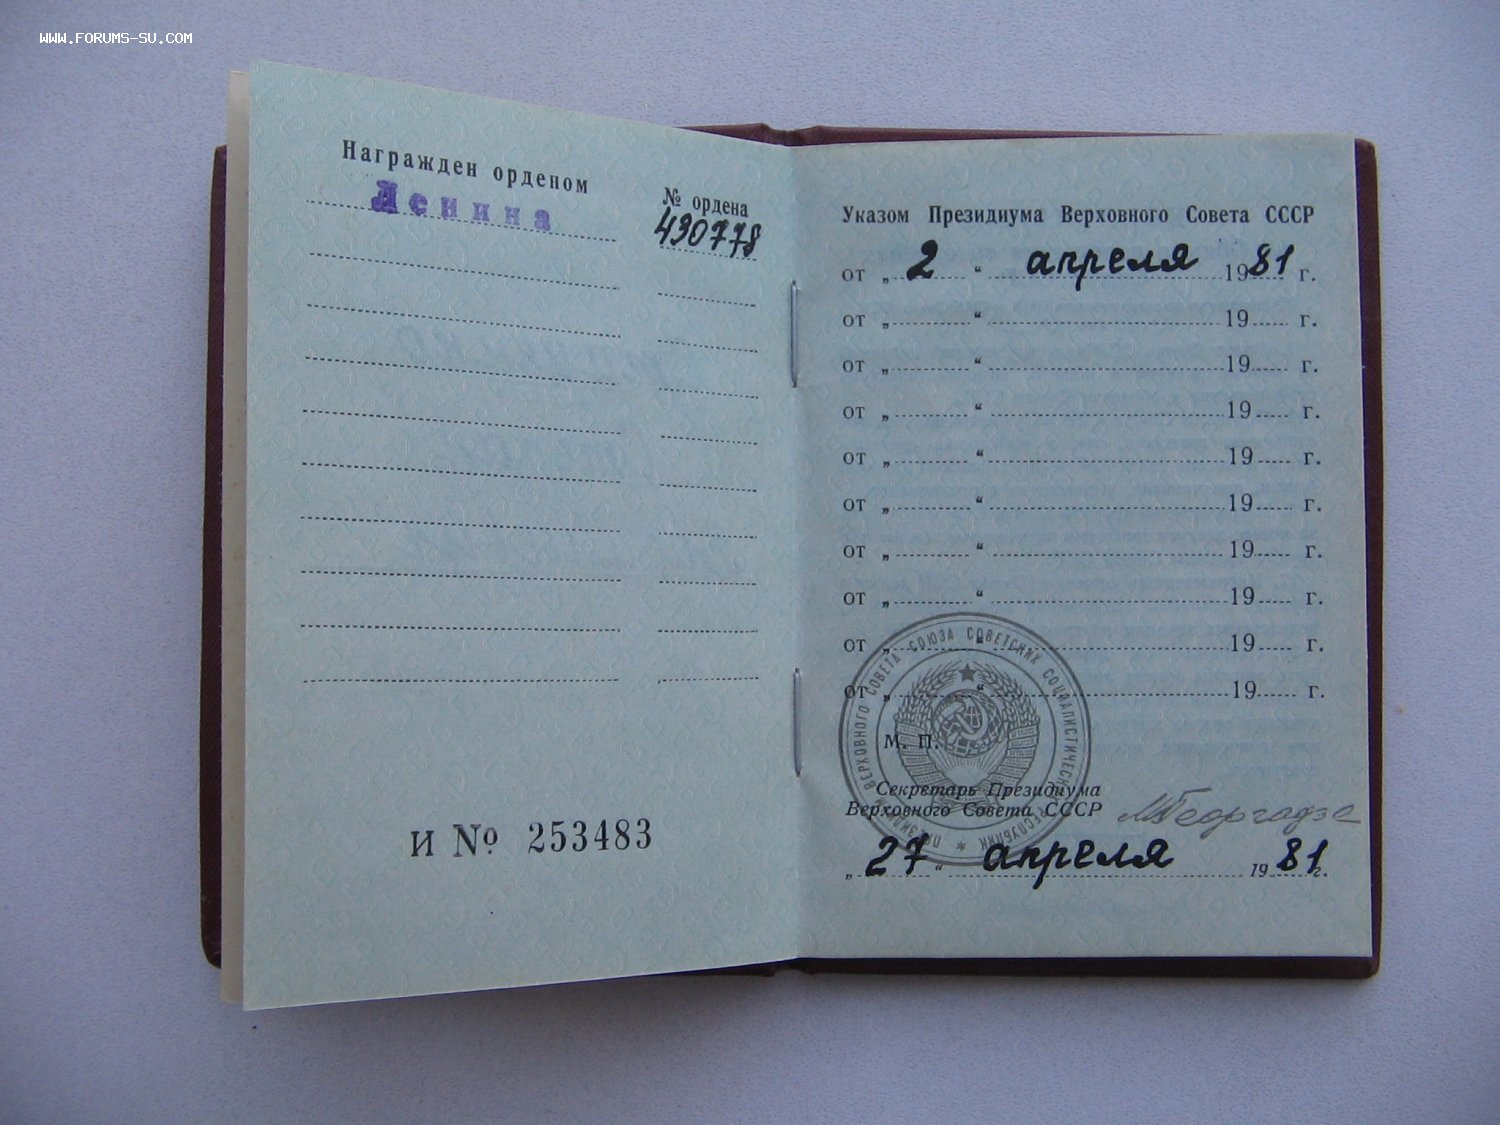 WWW.FORUMS-SU.COM
Награжден орденом
№ ордена
Ленина
430778
И № 253483
Указом Президиума Верховного Совета СССР
от „ 2 “ апреля 1981 г.
от „ “ 19 г.
от „ “ 19 г.
от „ “ 19 г.
от „ “ 19 г.
от „ “ 19 г.
от „ “ 19 г.
от „ “ 19 г.
от „ “ 19 г.
от „ “ 19 г.
ПРЕЗИДИУМ ВЕРХОВНОГО СОВЕТА СОЮЗА СОВЕТСКИХ СОЦИАЛИСТИЧЕСКИХ РЕСПУБЛИК
М. П.
Секретарь Президиума
Верховного Совета СССР МГеоргадзе
„ 27 “ апреля 1981 г.